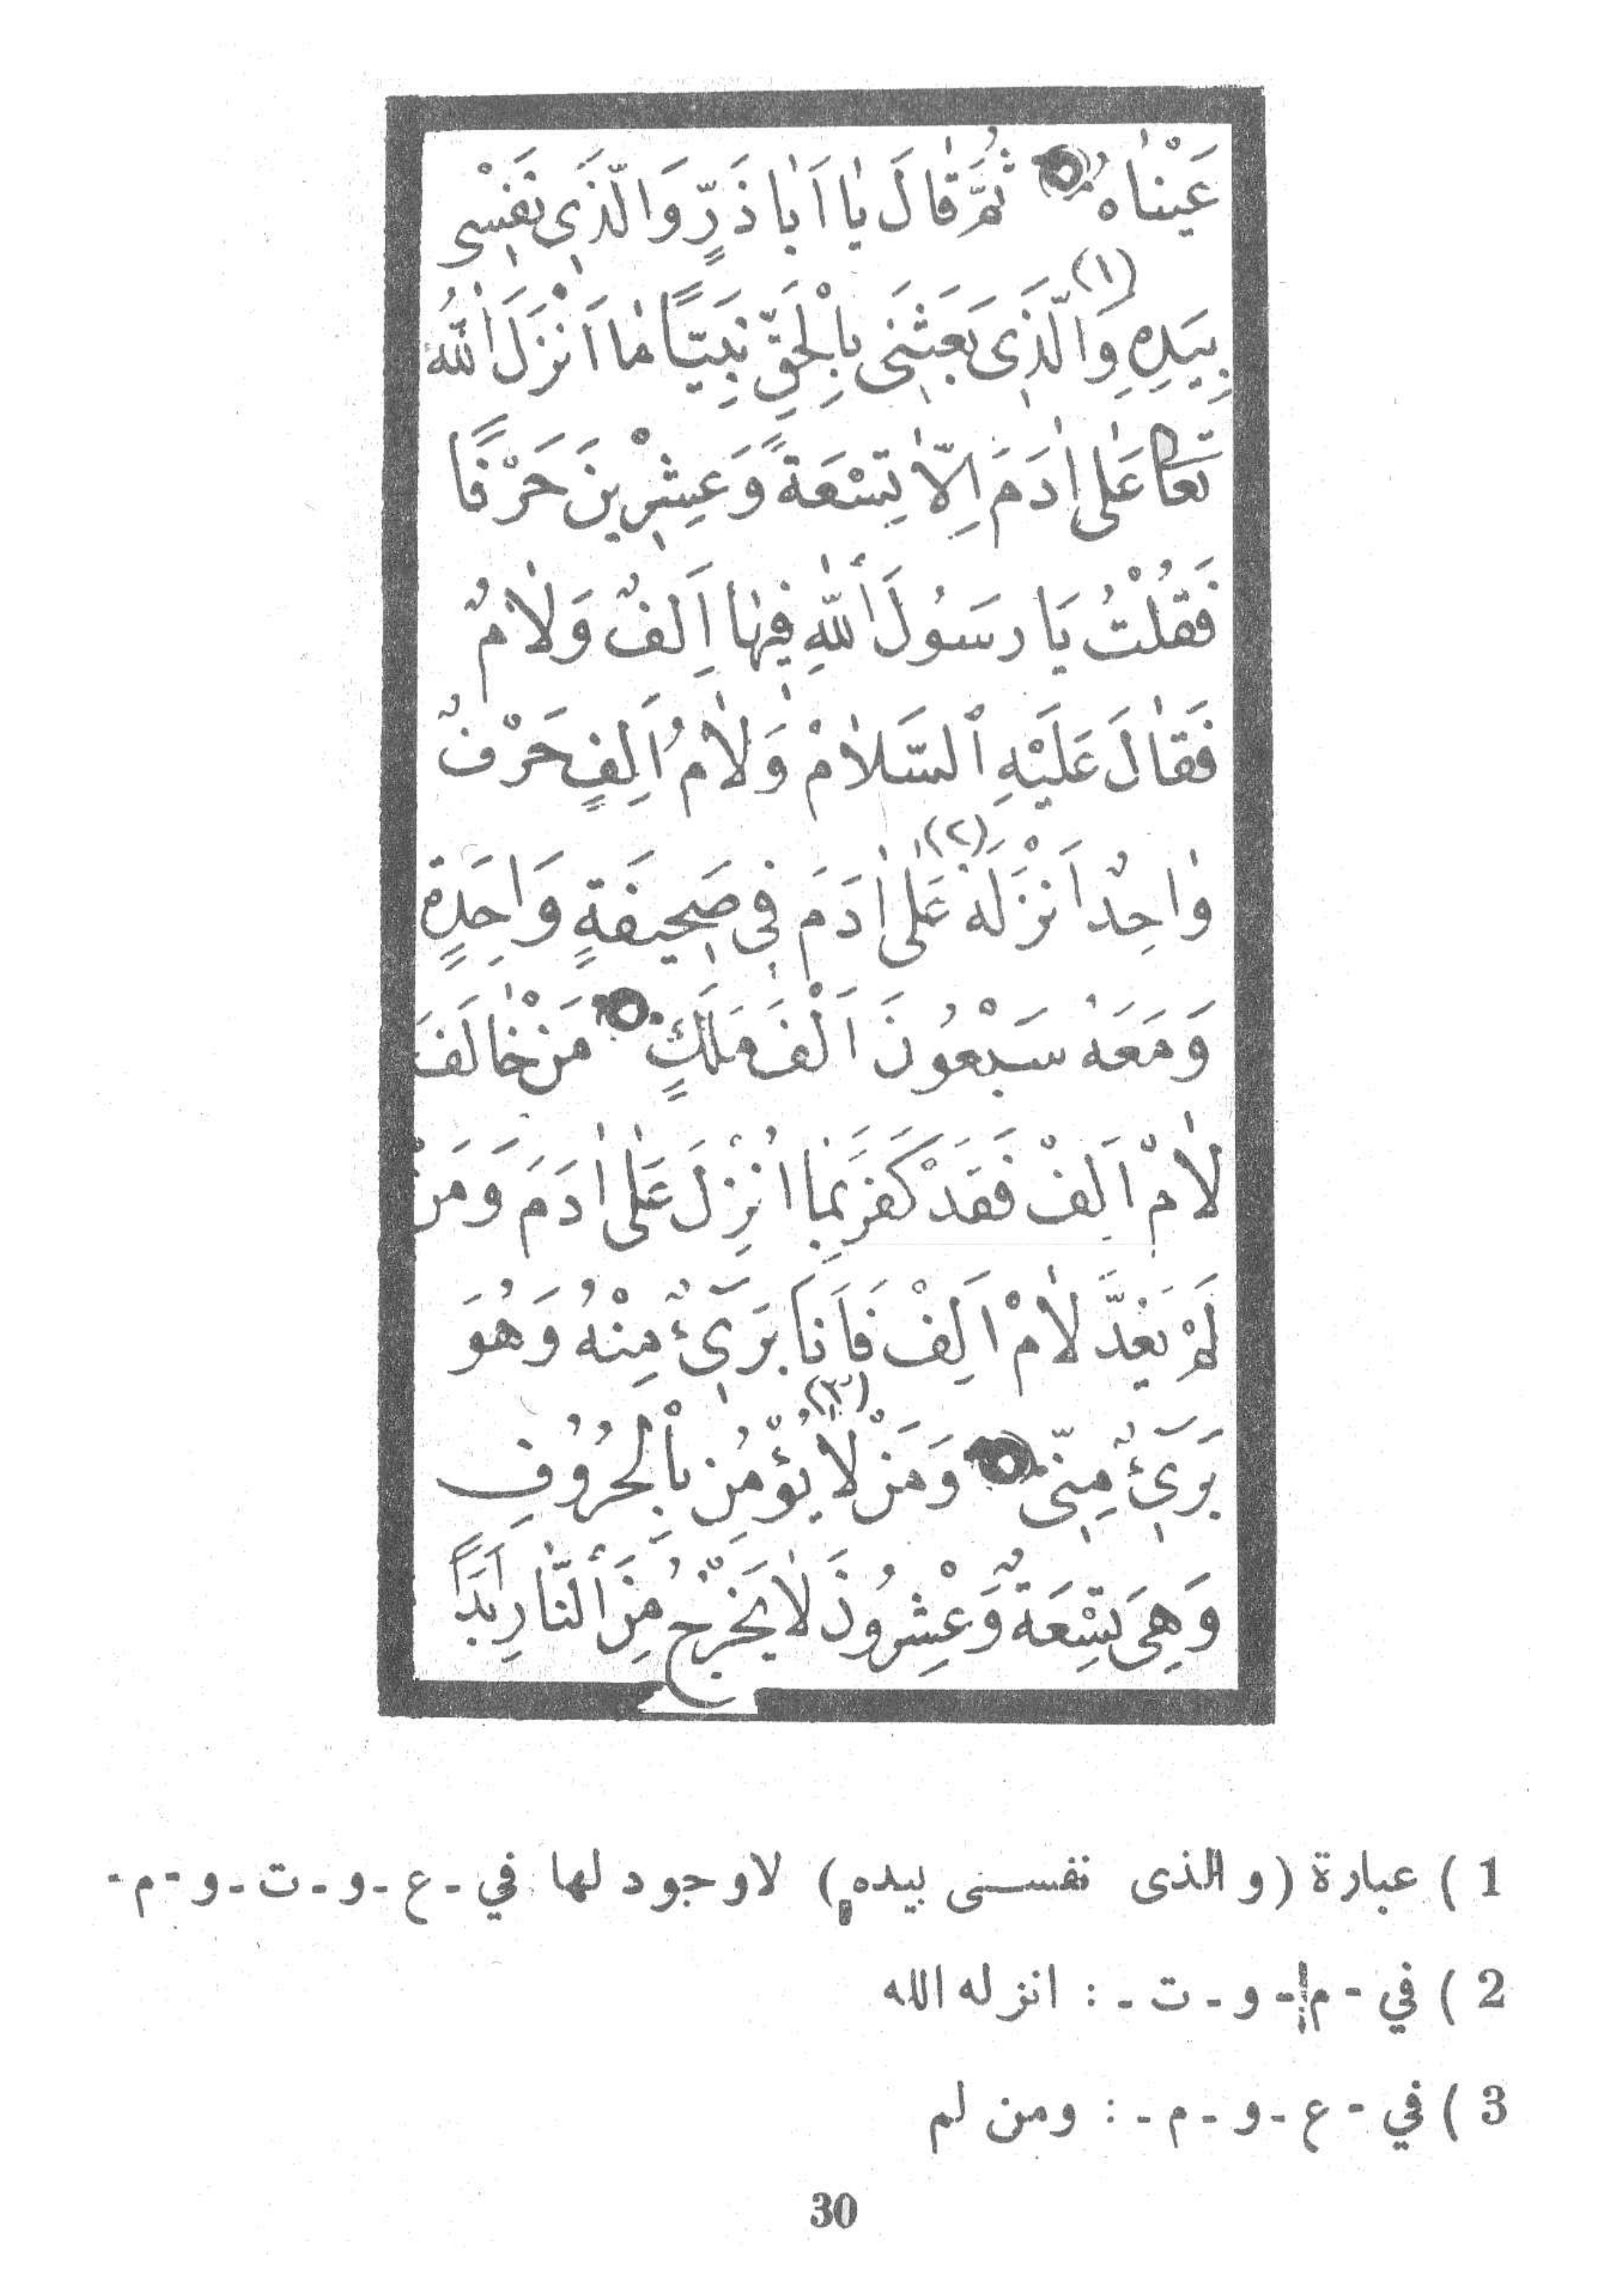 عَيْنَاهُ ثُمَّ قَالَ يَا اَبَا ذَرٍّ وَالَّذِى نَفْسِى
بِيَدِهِ (١) وَالَّذِى بَعَثَنِى بِالْحَقِّ نَبِيًّا مَا اَنْزَلَ اللهُ
تَعَا عَلَى اٰدَمَ اِلَّا تِسْعَةً وَعِشْرِينَ حَرْفًا
فَقُلْتُ يَا رَسُولَ اللهِ فِيهَا اَلِفٌ وَلَامٌ
فَقَالَ عَلَيْهِ السَّلَامْ وَلَامُ اَلِفٍ حَرْفٌ
وَاحِدٌ اَنْزَلَهُ (٢) عَلَى اٰدَمَ فِى صَحِيفَةٍ وَاحِدَةٍ
وَمَعَهُ سَبْعُونَ اَلْفَ مَلَكٍ مَنْ خَالَفَ
لَامْ اَلِفْ فَقَدْ كَفَرَ بِمَا اُنْزِلَ عَلَى اٰدَمَ وَمَنْ
لَمْ يَعُدَّ لَامْ اَلِفْ فَاَنَا بَرِىءٌ مِنْهُ وَهُوَ
بَرِىءٌ مِنِّى وَمَنْ لَا (٣) يُؤْمِنُ بِالْحُرُوفِ
وَهِىَ تِسْعَةٌ وَعِشْرُونَ لَا يَخْرُجُ مِنَ النَّارِ اَبَدًا
1 ) عبارة (والذى نفسى بيده) لاوجود لها في - ع - و - ت - و - م -
2 ) في - م - و - ت - : انزله الله
3 ) في - ع - و - م - : ومن لم
30